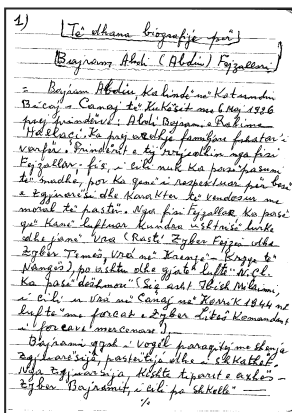 1)
Të dhana biografije për
Bajram Abdi (Abdiu) Fejzallari
= Bajram Abdiu ka lindë në Katundin
Bicaj = Canaj të Kukësit me 6 Maj 1926
prej prindëve: Abdi Bajram e Rabime
Hallaçi. Ka prejardhje familjare fshatar i
varfër. Prindërit e tij rrjedhin nga fisi
Fejzallar. fis, i cili nuk ka pasë pasuni
të madhe, por ka qenë i respektuar për besë
e zgjuarësi dhe karakter të vendosur me
moral të pastër. Nga fisi Fejzallar ka pasë
që kanë luftuar kundra ushtrisë turke
dhe janë vra (Rasti Zyber Fejzi dhe
Zyber Temës, vra në Krenzë = Krygje të
Nangës), po ashtu dhe gjatë luftë N.Çl.
ka pasë dëshmou (Siç asht Ibish Milaimi,
i cili u vra në Canaj në Korrik 1944 në
luftë me forcat e Zyber Likës Komandant
i forcave mercenare).
Bajrami qysh i vogël paraqitej me shenja
zgjuarësije, pastërtije dhe i shkathët.
Nga zgjuarsija kishte tiparet e axhës =
Zyber Bajramit, i cili pa shkollë
%